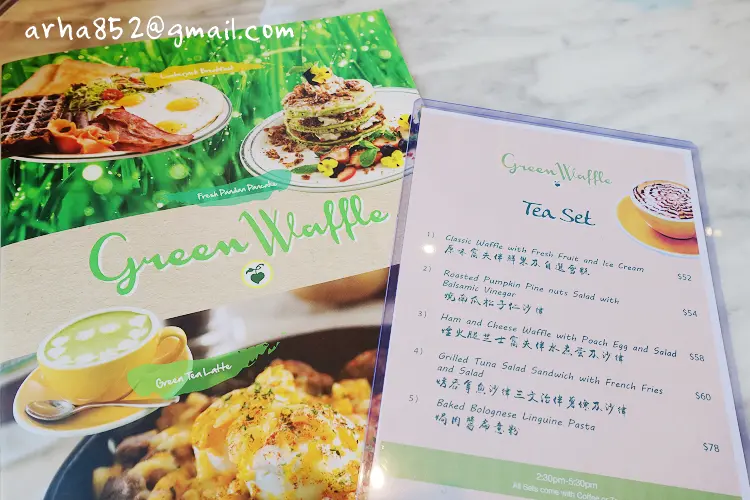 arha852@gmail.com
Breakfast
Fresh Pandan Pancake
Green Waffle
Green Tea Latte
Green Waffle
Tea Set
1) Classic Waffle with Fresh Fruit and Ice Cream
原味窩夫伴鮮果及自選雪糕 $52
2) Roasted Pumpkin Pine nuts Salad with
Balsamic Vinegar $54
焗南瓜松子仁沙律
3) Ham and Cheese Waffle with Poach Egg and Salad $58
煙火腿芝士窩夫伴水煮蛋及沙律
4) Grilled Tuna Salad Sandwich with French Fries
and Salad $60
烤吞拿魚沙律三文治伴薯條及沙律
5) Baked Bolognese Linguine Pasta
焗肉醬扁意粉 $78
2:30pm-5:30pm
All sets come with Coffee or